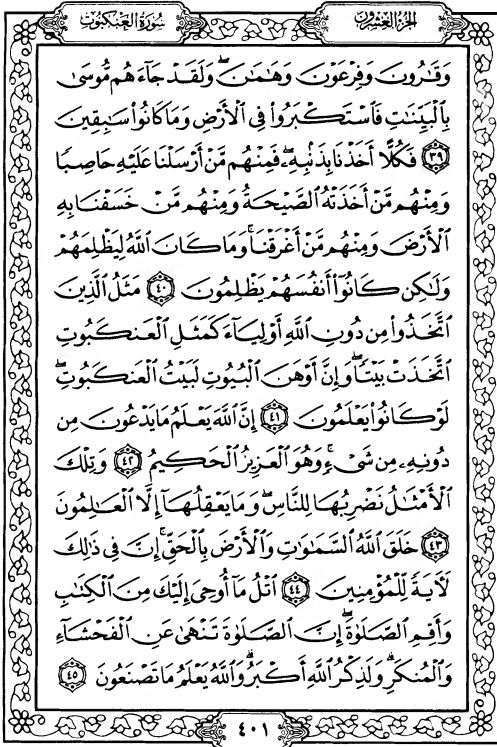 سُورَةُ العَنكَبُوتِ
الجُزْءُ العِشْرُونَ
وَقَارُونَ وَفِرْعَوْنَ وَهَامَانَ ۖ وَلَقَدْ جَاءَهُم مُّوسَىٰ
بِالْبَيِّنَاتِ فَاسْتَكْبَرُوا فِي الْأَرْضِ وَمَا كَانُوا سَابِقِينَ
﴿٣٩﴾ فَكُلًّا أَخَذْنَا بِذَنبِهِ ۖ فَمِنْهُم مَّنْ أَرْسَلْنَا عَلَيْهِ حَاصِبًا
وَمِنْهُم مَّنْ أَخَذَتْهُ الصَّيْحَةُ وَمِنْهُم مَّنْ خَسَفْنَا بِهِ
الْأَرْضَ وَمِنْهُم مَّنْ أَغْرَقْنَا ۚ وَمَا كَانَ اللَّهُ لِيَظْلِمَهُمْ
وَلَٰكِن كَانُوا أَنفُسَهُمْ يَظْلِمُونَ ﴿٤٠﴾ مَثَلُ الَّذِينَ
اتَّخَذُوا مِن دُونِ اللَّهِ أَوْلِيَاءَ كَمَثَلِ الْعَنكَبُوتِ
اتَّخَذَتْ بَيْتًا ۖ وَإِنَّ أَوْهَنَ الْبُيُوتِ لَبَيْتُ الْعَنكَبُوتِ ۖ
لَوْ كَانُوا يَعْلَمُونَ ﴿٤١﴾ إِنَّ اللَّهَ يَعْلَمُ مَا يَدْعُونَ مِن
دُونِهِ مِن شَيْءٍ ۚ وَهُوَ الْعَزِيزُ الْحَكِيمُ ﴿٤٢﴾ وَتِلْكَ
الْأَمْثَالُ نَضْرِبُهَا لِلنَّاسِ ۖ وَمَا يَعْقِلُهَا إِلَّا الْعَالِمُونَ
﴿٤٣﴾ خَلَقَ اللَّهُ السَّمَاوَاتِ وَالْأَرْضَ بِالْحَقِّ ۚ إِنَّ فِي ذَٰلِكَ
لَآيَةً لِّلْمُؤْمِنِينَ ﴿٤٤﴾ اتْلُ مَا أُوحِيَ إِلَيْكَ مِنَ الْكِتَابِ
وَأَقِمِ الصَّلَاةَ ۖ إِنَّ الصَّلَاةَ تَنْهَىٰ عَنِ الْفَحْشَاءِ
وَالْمُنكَرِ ۗ وَلَذِكْرُ اللَّهِ أَكْبَرُ ۗ وَاللَّهُ يَعْلَمُ مَا تَصْنَعُونَ ﴿٤٥﴾
٤٠١